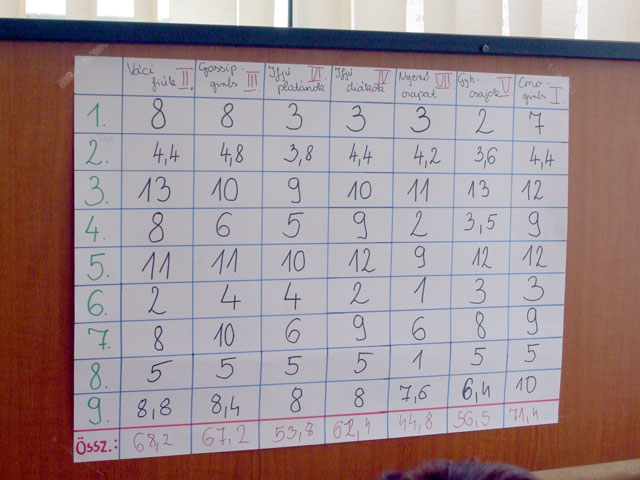 Váci fiúk II. Gossip-girls III. Ifjú platánok VI. Ifjú diákok IV. Nyerő csapat VII. Gyk-csajok V. Emo-girls I.
1. 8 8 3 3 3 2 7
2. 4,4 4,8 3,8 4,4 4,2 3,6 4,4
3. 13 10 9 10 11 13 12
4. 8 6 5 9 2 3,5 9
5. 11 11 10 12 9 12 12
6. 2 4 4 2 1 3 3
7. 8 10 6 9 6 8 9
8. 5 5 5 5 1 5 5
9. 8,8 8,4 8 8 7,6 6,4 10
Össz.: 68,2 67,2 53,8 62,4 44,8 56,5 71,4